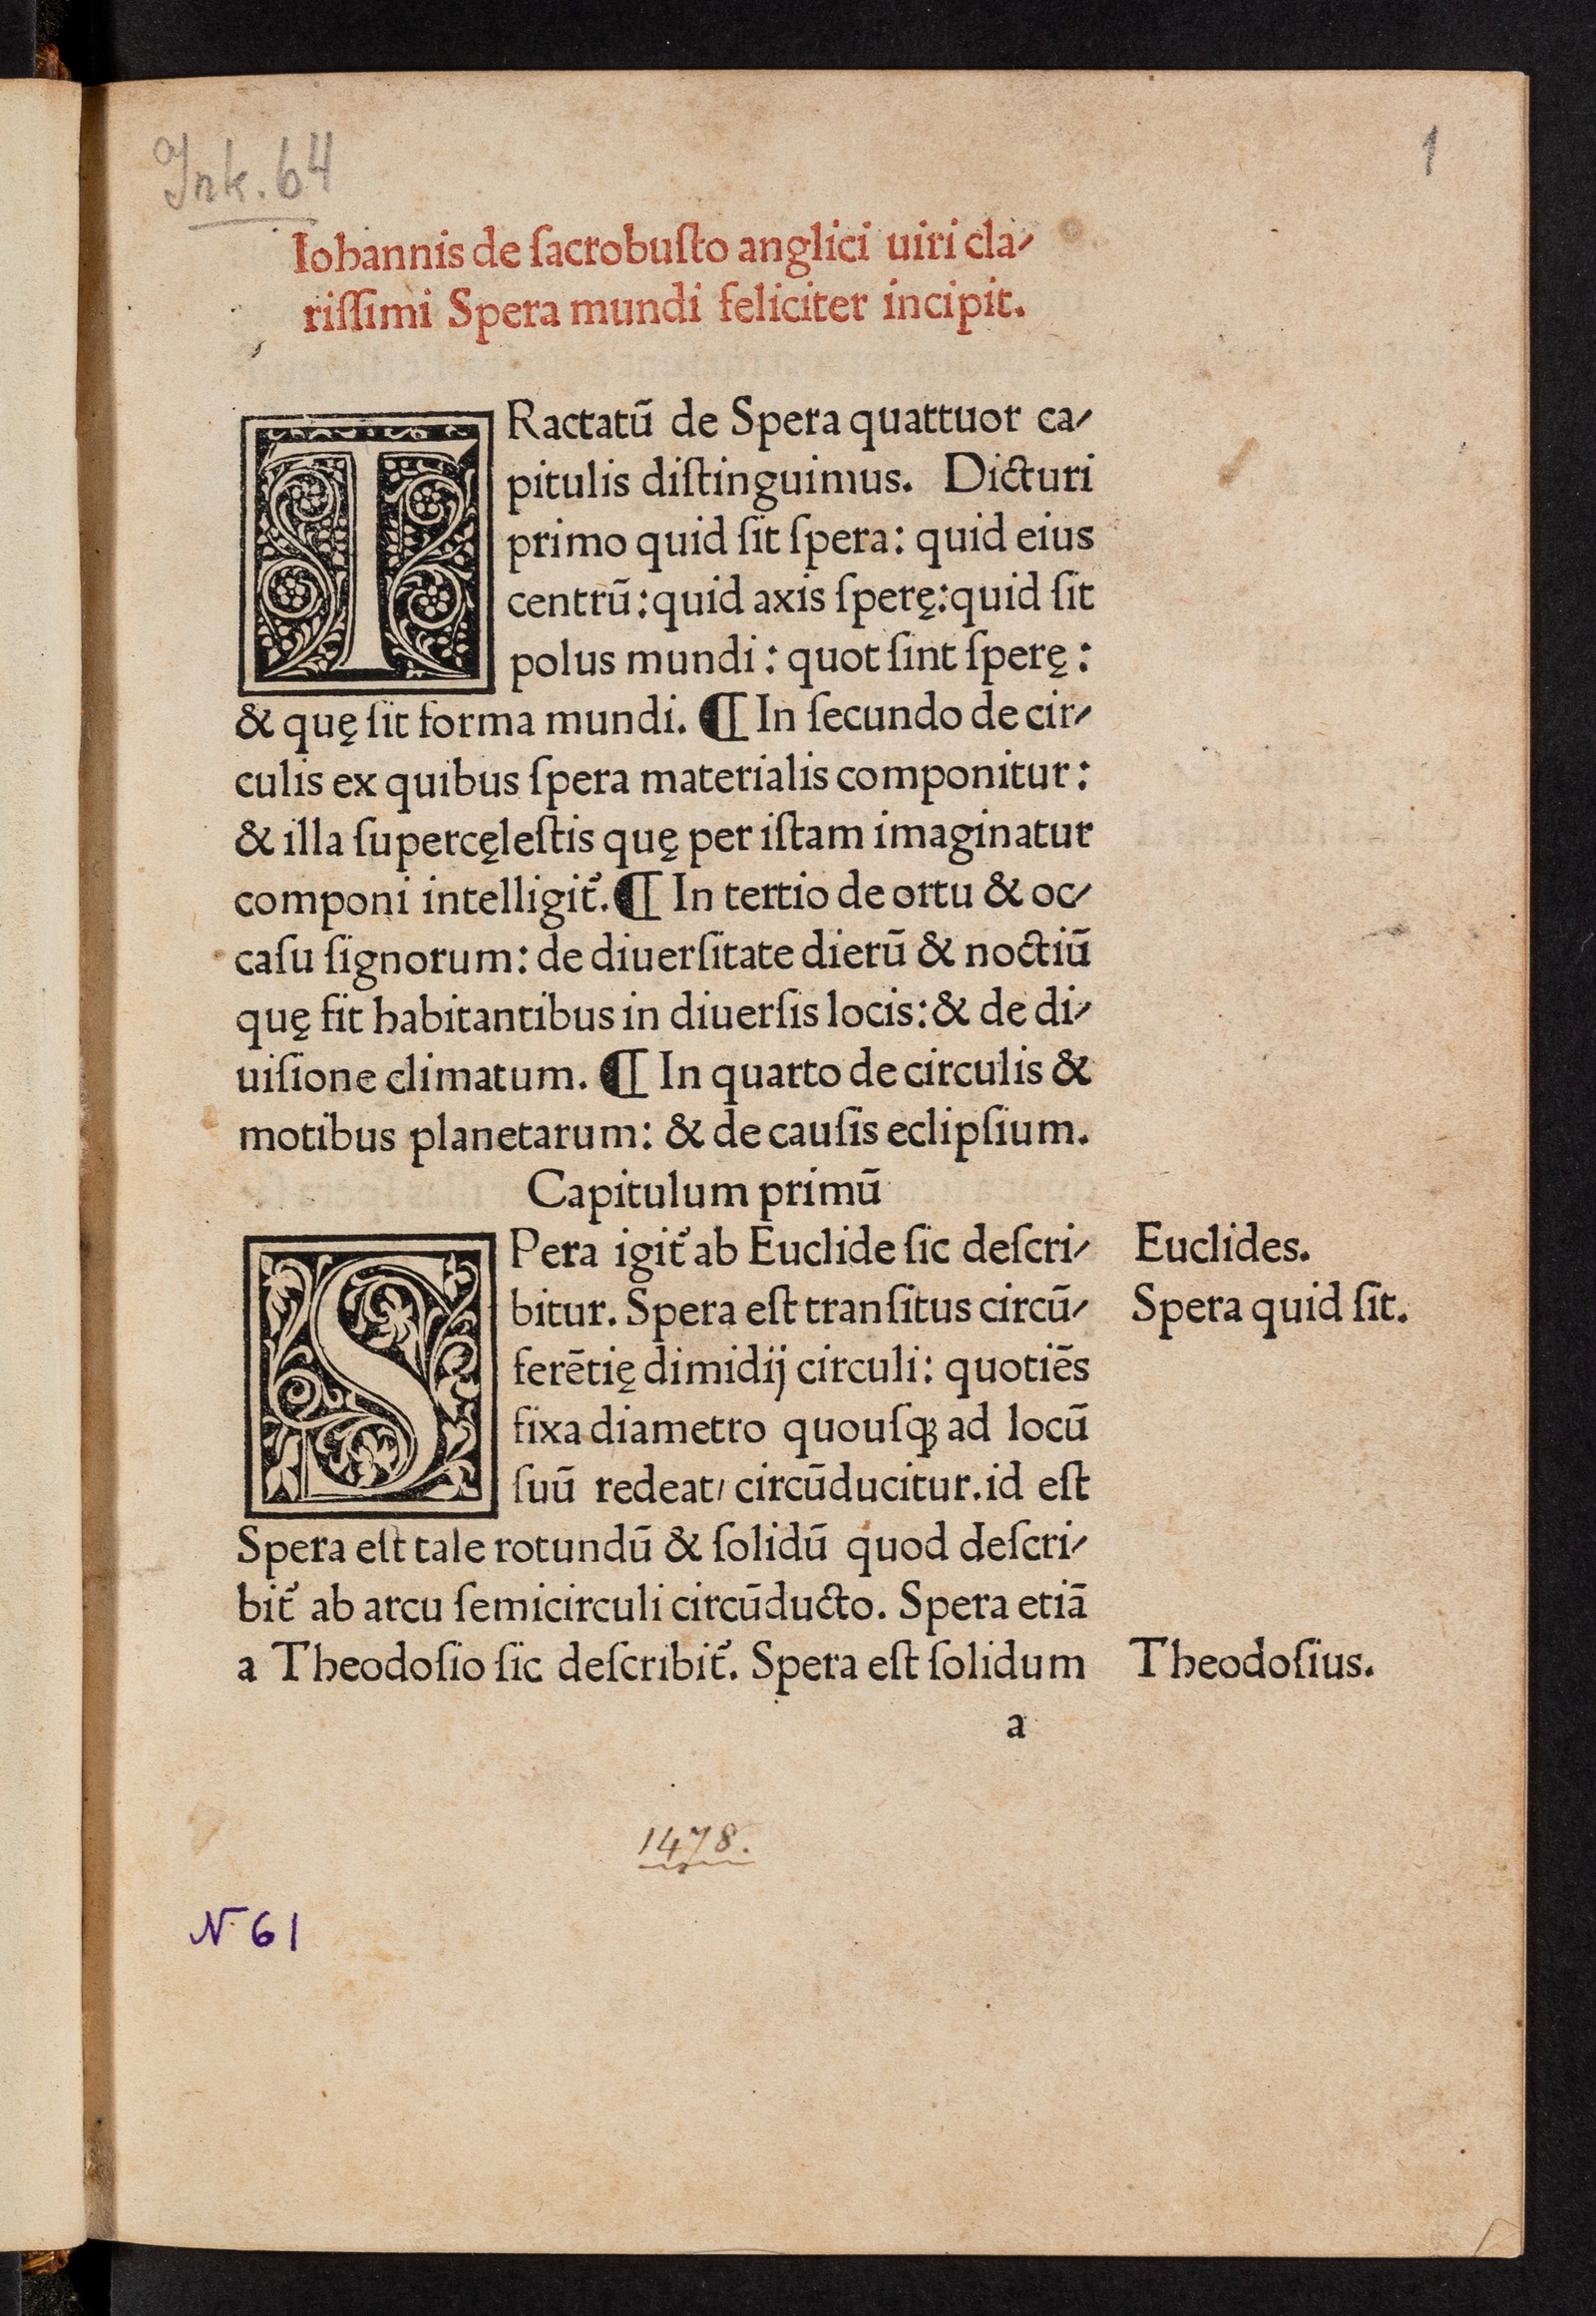 Ink. 64
1
Iohannis de ſacrobuſto anglici uiri cla⸗
riſſimi Spera mundi feliciter incipit.
TRactatū de Spera quattuor ca⸗
pitulis diſtinguimus. Dicturi
primo quid ſit ſpera: quid eius
centrū: quid axis ſperę: quid ſit
polus mundi: quot ſint ſperę:
& quę ſit forma mundi. ¶ In ſecundo de cir⸗
culis ex quibus ſpera materialis componitur:
& illa ſupercęleſtis quę per iſtam imaginatur
componi intelligit᷑. ¶ In tertio de ortu & oc⸗
caſu ſignorum: de diuerſitate dierū & noctiū
quę fit habitantibus in diuerſis locis: & de di⸗
uiſione climatum. ¶ In quarto de circulis &
motibus planetarum: & de cauſis eclipſium.
Capitulum primū
SPera igit᷑ ab Euclide ſic deſcri⸗ Euclides.
bitur. Spera eſt tranſitus circū⸗ Spera quid ſit.
ferētię dimidij circuli: quotiēs
fixa diametro quouſqꝫ ad locū
ſuū redeat/ circūducitur. id eſt
Spera eſt tale rotundū & ſolidū quod deſcri⸗
bit᷑ ab arcu ſemicirculi circūducto. Spera etiā
a Theodoſio ſic deſcribit᷑. Spera eſt ſolidum Theodoſius.
a
1478.
N 61